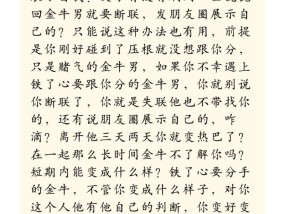 回金牛男就要断联,发朋友圈展示自
己的?只能说这种办法也有用,前提
是你刚好碰到了压根就没想跟你分,
只是赌气的金牛男。如果你不幸遇上
铁了心要跟你分的金牛男,你就别说
你断联了,你就是失联他也不带找你
的,还有说朋友圈展示自己的,咋
滴?离开他三天两天你就变热巴了?
在一起那么长时间金牛不了解你吗?
短期内能变成什么样?铁了心要分手
的金牛,不管你变成什么样子,对你
这个人他有他自己的判断,你变好变